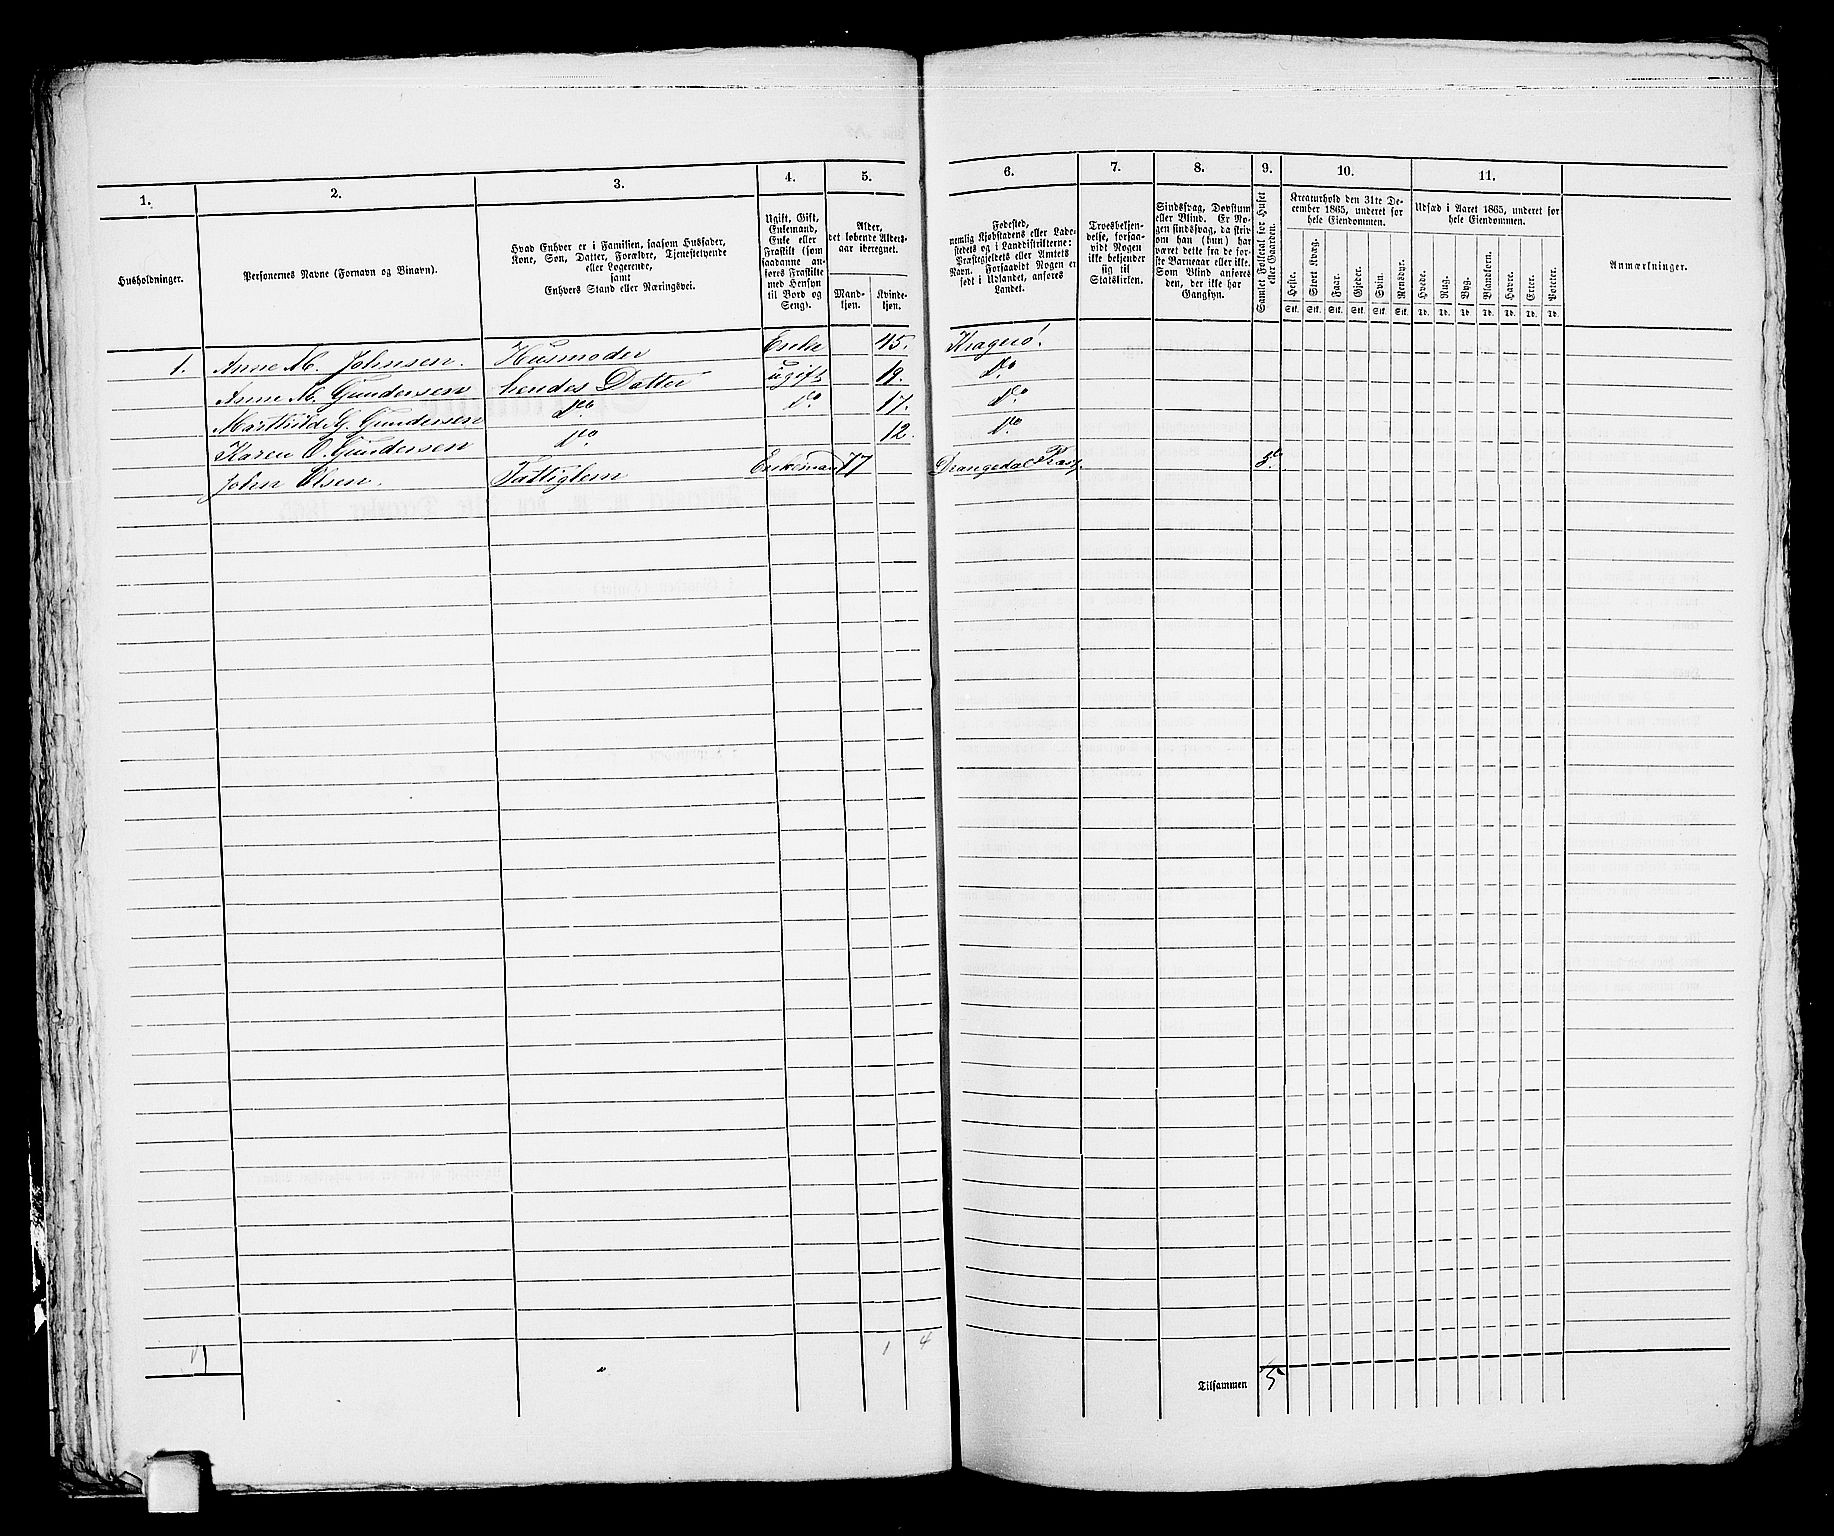 1.
2.
3.
4.
5.
6.
7.
8.
9.
10.
11.
Husholdninger.
Personernes Navne (Fornavn og Binavn).
Hvad Enhver er i Familien, saasom Husfader,
Kone, Søn, Datter, Forældre, Tjenestetyende
eller Logerende,
samt
Enhvers Stand eller Næringsvei.
Ugift, Gift,
Enkemand,
Enke eller
Fraskilt (som
saadanne anføres
Fraskilte
med Hensyn
til Bord og
Seng).
Alder,
det løbende Alders-
aar iberegnet.
Mand-
kjøn.
Kvinde-
kjøn.
Fødested,
nemlig Kjøbstadens eller Lade-
stedets og i Landdistrikterne:
Præstegjeldets eller Amtets
Navn. Forsaavidt Nogen er
født i Udlandet, anføres
Landet.
Troesbekjen-
delse, forsaa-
vidt Nogen
ikke bekjender
sig til
Statskirken.
Sindssvag, Døvstum
eller Blind. Er No-
gen sindssvag, da skriv
om han (hun) har
været dette fra de før-
ste Barneaar eller ikke.
Som Blind anføres
den, der ikke har
Gangsyn.
Samlet Folketal for Huset
eller Gaarden.
Kreaturhold den 31te De-
cember 1865, underet for
hele Eiendommen.
Heste.
Stort Kvæg.
Faar.
Gjeder.
Svin.
Rensdyr.
Stk. Stk. Stk. Stk. Stk. Stk.
Udsæd i Aaret 1865, underet for
hele Eiendommen.
Hvede.
Rug.
Byg.
Blandkorn.
Havre.
Erter.
Poteter.
Td. Td. Td. Td. Td. Td. Td.
Anmærkninger.
1. Anne M. Johnsen. Husmoder Enke 45. Kragerö.
Anne M. Gundersen hendes Datter ugift 19. Do
Mathild G. Gundersen Do Do 17. Do
Karen O. Gundersen Do 12. Do
John Olsen. Fattiglem Enkemand 77 Drangedal Præst. 5.
1 4
Tilsammen 5